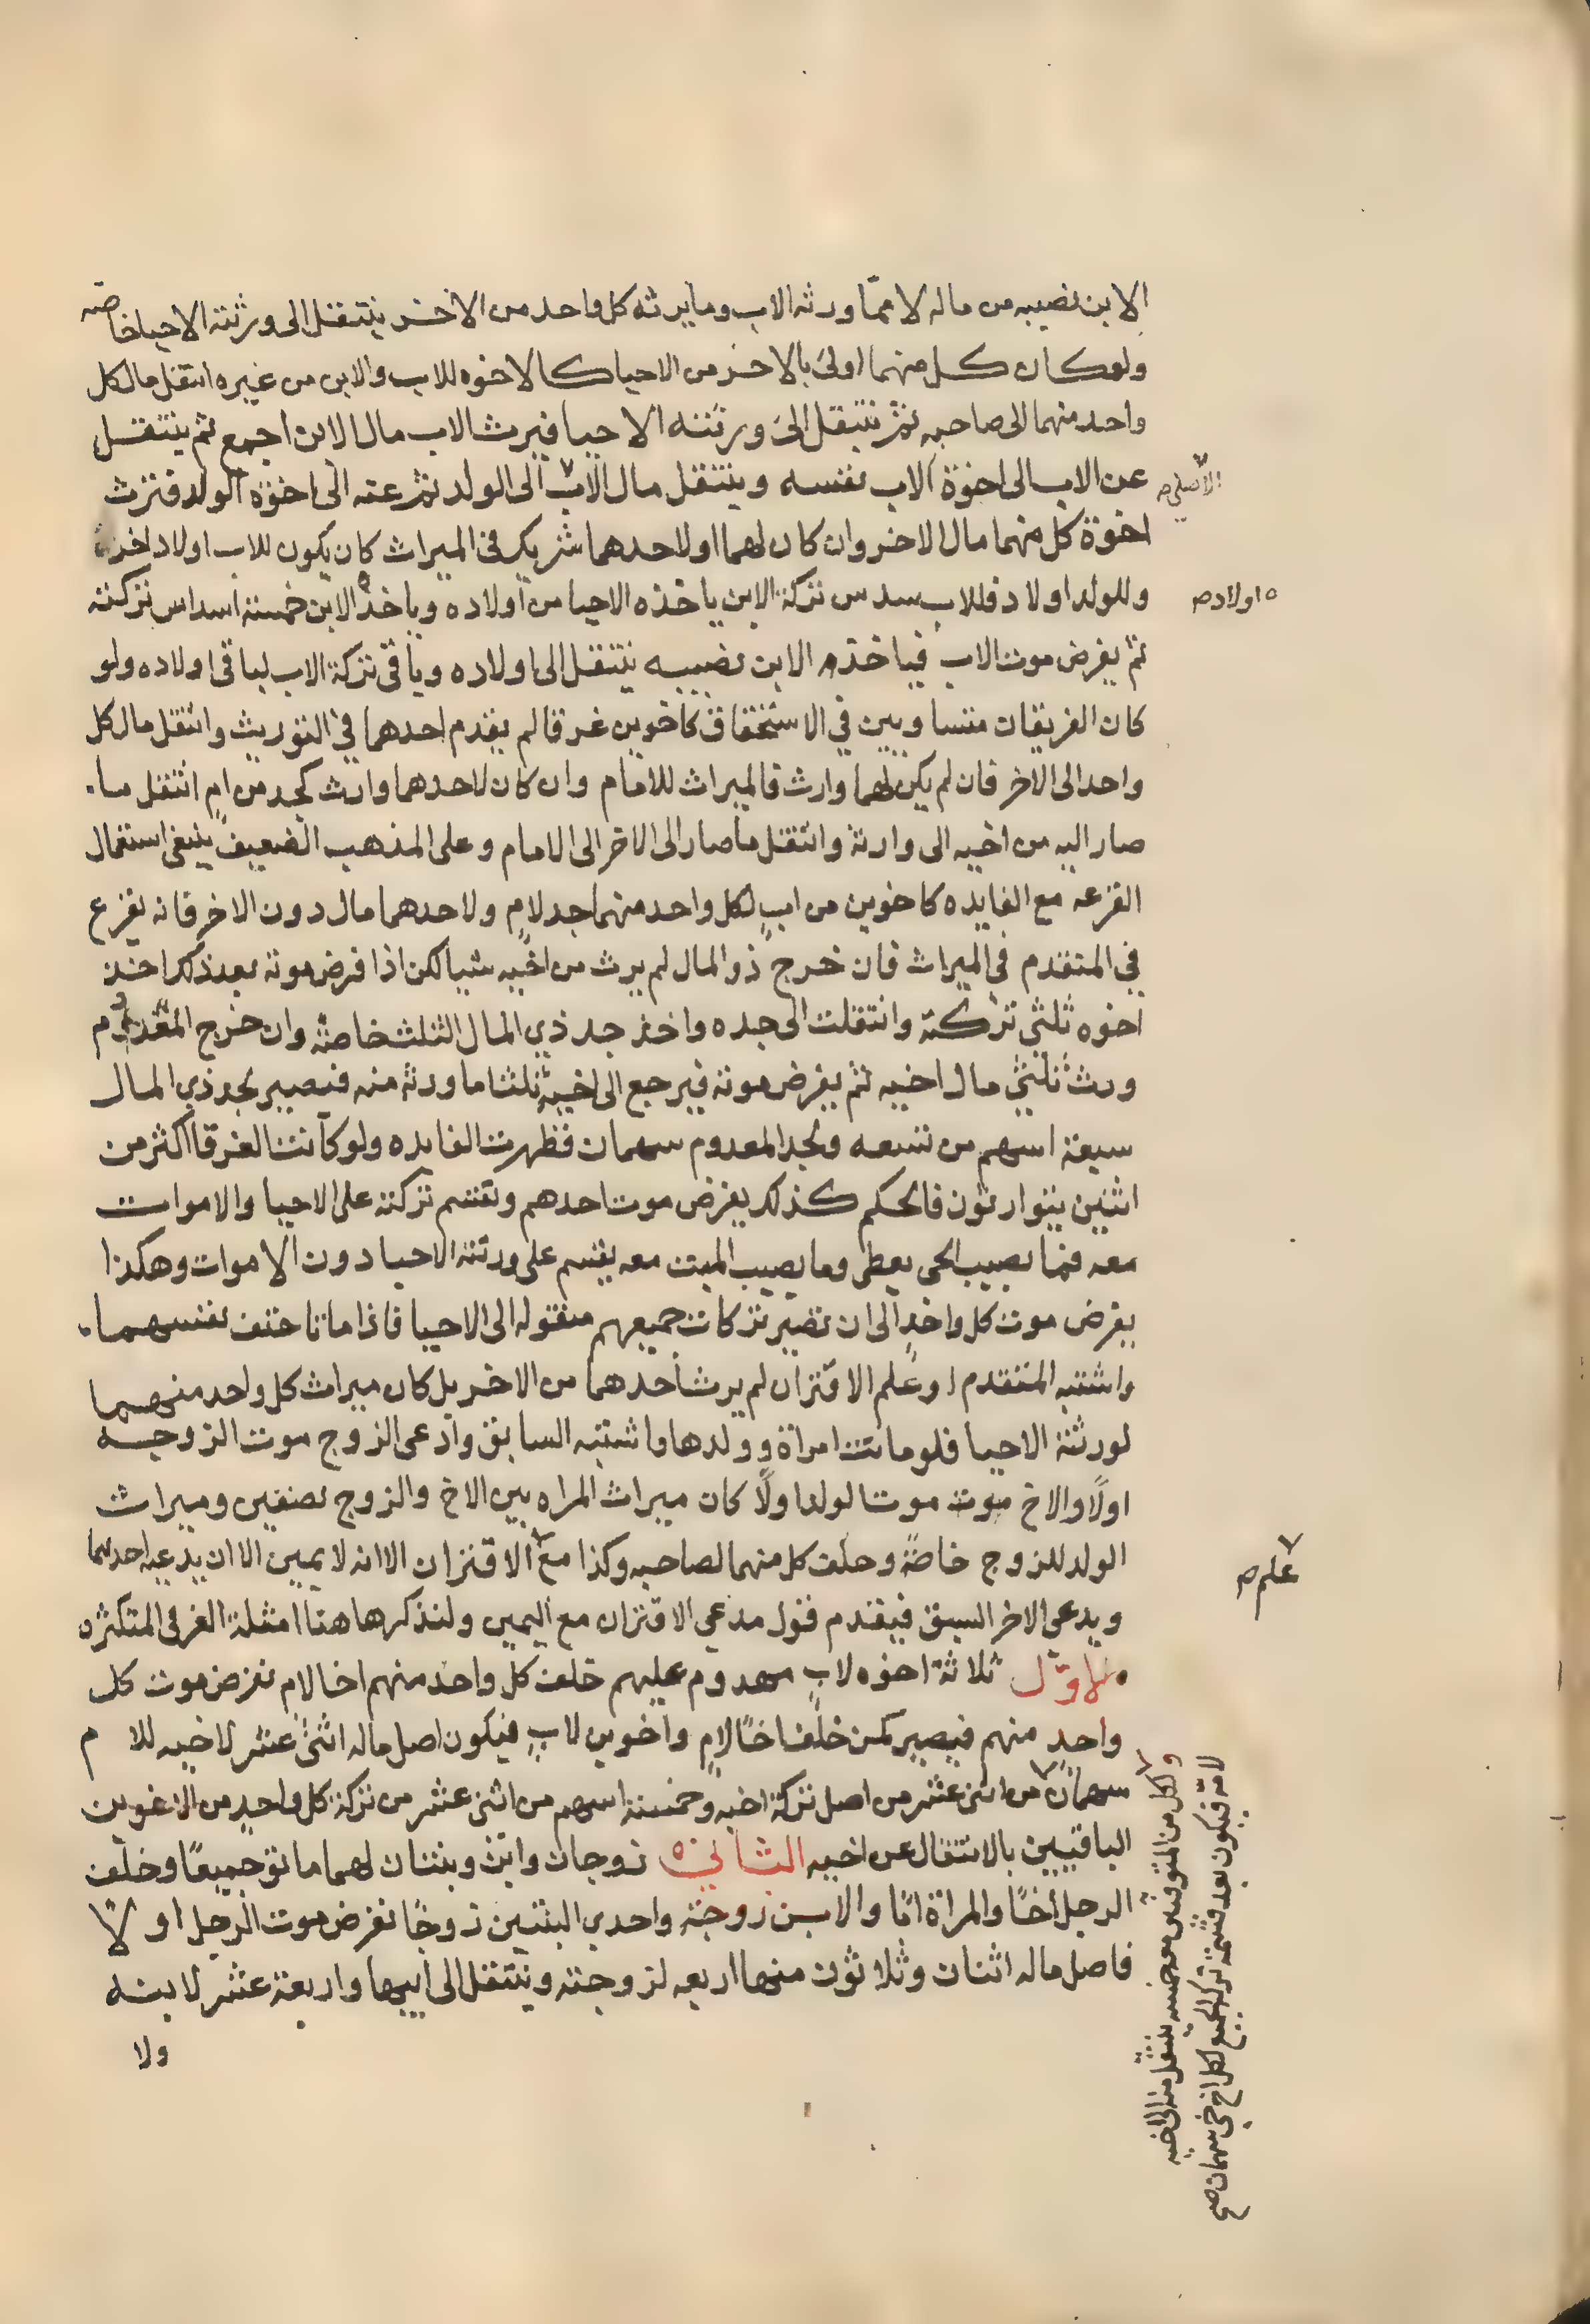 الابن نصيبه من ماله لا ممّا ورثه الاب وما يرثه كل واحد من الاخر ينتقل الى ورثته الاحيا خاصّه
ولو كان كل منهما اولى بالاخر من الاحيا كالاخوه للاب والابن من غيره انتقل مال كل
واحد منهما الى صاحبه ثم ينتقل الى ورثته الاحيا فيرث الاب مال الابن اجمع ثم ينتقل
عن الاب الى اخوة الاب نفسه وينتقل مال الاب الى الولد ثم عنه الى اخوة الولد فترث
الاصلي صح
اخوة كل منهما مال الاخر وان كان لهما او لاحدهما شريك في الميراث كان يكون للاب اولاد اخر
وللولد اولاد فللاب سدس تركة الابن ياخذه الاحيا من اولاده وياخذ الابن خمسة اسداس تركته
ه اولاد صح
ثم يفرض موت الاب فياخذ الابن نصيبه ينتقل الى اولاده وباقي تركة الاب لباقي اولاده ولو
كان الفريقان متساويين في الاستحقاق كاخوين غرقا لم يقدم احدهما في التوريث وانتقل مال كل
واحد الى الاخر فان لم يكن لهما وارث فالميراث للامام وان كان لاحدهما وارث كجد من ام انتقل ما
صار اليه من اخيه الى وارثه وانتقل ما صار الى الاخر الى الامام وعلى المذهب الضعيف ينبغي استعمال
القرعه مع الفايده كاخوين من ابٍ لكل واحد منهما جد لامٍ ولاحدهما مال دون الاخر فانه يقرع
في المتقدم في الميراث فان خرج ذو المال لم يرث من اخيه شيا لكن اذا فرض موته بعد ذلك اخذ
اخوه ثلثي تركته وانتقلت الى جده واخذ جد ذي المال الثلث خاصّة وان خرج المعدوم
ورث ثلثي مال اخيه ثم يفرض موته فيرجع الى اخيه ثلثا ما ورثه منه فيصير لجد ذي المال
سبعة اسهم من تسعه ولجد المعدوم سهمان فظهرت الفايده ولو كانت الغرقا اكثر من
اثنين يتوارثون فالحكم كذلك يفرض موت احدهم وتقسم تركته على الاحيا والاموات
معه فما يصيب الحي يعطى وما يصيب الميت معه يقسم على ورثته الاحيا دون الاموات وهكذا
يفرض موت كل واحدٍ الى ان تصير تركات جميعهم منقوله الى الاحيا فاذا ماتا حتف نفسهما
واشتبه المتقدم او علم الاقتران لم يرث احدهما من الاخر بل كان ميراث كل واحد منهما
لورثته الاحيا فلو ماتت امراة وولدها واشتبه السابق وادعى الزوج موت الزوجه
اولًا والاخ موت موت الولد اولًا كان ميراث المراه بين الاخ والزوج نصفين وميراث
الولد للزوج خاصةً وحلف كل منهما لصاحبه وكذا مع الاقتران الا انه لا يمين الا ان يدعيه احدهما
علم صح
ويدعى الاخر السبق فيقدم قول مدعي الاقتران مع اليمين ولنذكر هاهنا امثلة الغرقى المتكثره
الاوّل ثلاثة اخوه لابٍ مهدوم عليهم خلف كل واحد منهم اخا لام نفرض موت كل
واحدٍ منهم فيصير كمن خلف اخًا لامٍ واخوين لابٍ فيكون اصل ماله اثني عشر لاخيه للام
سهمان من اثني عشر من اصل تركة اخيه وخمسة اسهم من اثني عشر من تركة كل واحدٍ من الاخوين
ولكل من المتوفين معه خمسه ينتقل منه الى اخيه
لامّه فيكون بعد قسمة تركة الجميع لكل اخ حي سهمان صح
الباقيين بالانتقال عن اخيه الثاني ه زوجان وابن وبنتان لهما ماتوا جميعًا وخلف
الرجل اخًا والمراة ابًا والابن زوجته واحدي البنتين زوجًا نفرض موت الرجل اولًا
فاصل ماله اثنان وثلاثون منها اربعه لزوجته وينتقل الى ابيها واربعة عشر لابنه
ولا